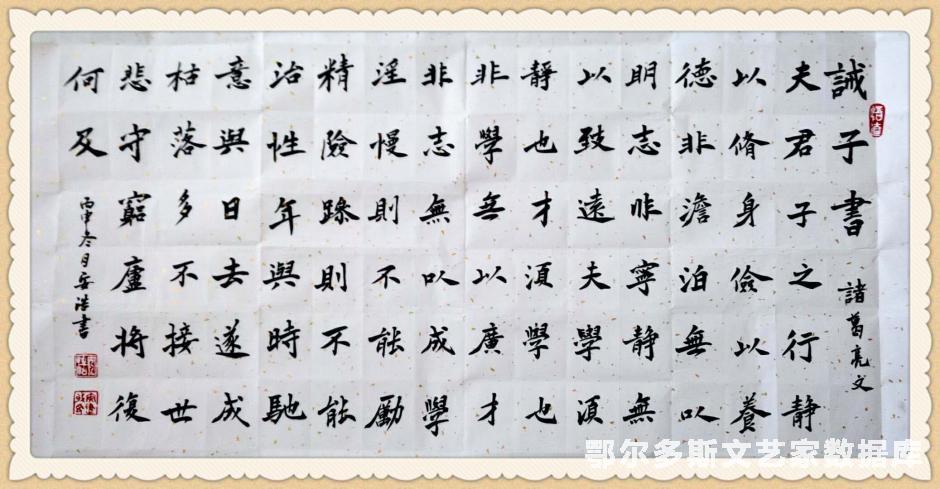 誡子書 諸葛亮文
夫君子之行静
以脩身儉以養
德非澹泊無以
明志非寧静無
以致遠夫學須
静也才須學也
非學無以廣才
非志無以成學
淫慢則不能勵
精險躁則不能
治性年與時馳
意與日去遂成
枯落多不接世
悲守窮廬將復
何及
丙申冬月書
鄂尔多斯文艺家数据库